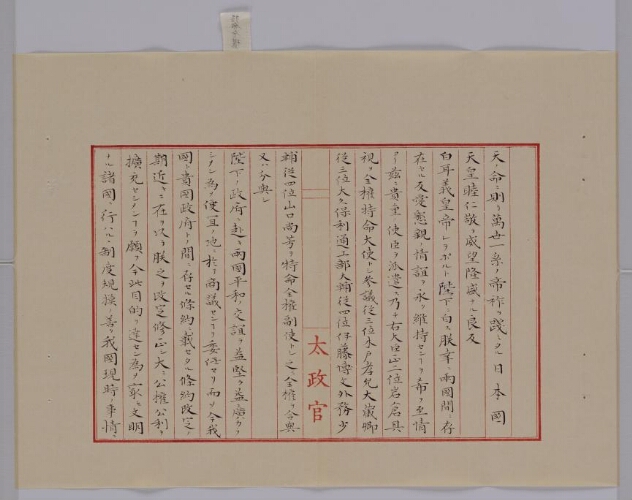 天ノ命ニ則リ萬世一系ノ帝祚ヲ践ミタル日本國
天皇睦仁敬テ威望隆盛ナル良友
白耳義皇帝レヲポルト陛下ニ白ス朕幸ニ兩國間ニ存
在セル友愛懇親ノ情誼ヲ永ク維持センヿヲ希フ至情
ヨリ茲ニ貴重ノ使臣ヲ派遣シ乃チ右大臣正二位岩倉具
視ヲ全権特命大使トシ参議従三位木戸孝允大蔵卿
従三位大久保利通工部大輔従四位伊藤博文外務少
太政官
輔従四位山口尚芳ヲ特命全権副使トシ之ニ全権ヲ合與
又ハ分與シ
陛下ノ政府ニ赴キ兩國平和ノ交誼ヲ益堅ク益廣クウ
シメン為ノ便宜ノ地ニ於テ商議センヿヲ委任セリ而〆今我
國ト貴國政府トノ間ニ存セル條約ニ載セタル條約改定ノ
期近キニ在リ以テ朕之ヲ改定修正シ大ニ公権公利ヲ
擴充センヿヲ願フ今此目的ヲ達セン為メ最文明
ナル諸國ニ行ハルヽ制度規模ノ善ク我國現時ノ事情ニ